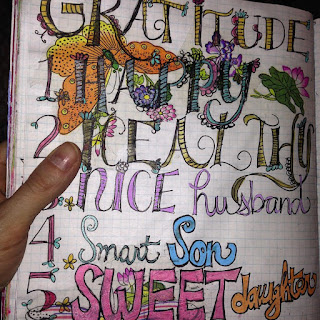 GRATITUDE
1. HAPPY
2. HEALTHY
3. NICE husband
4 Smart Son
5 SWEET daughter